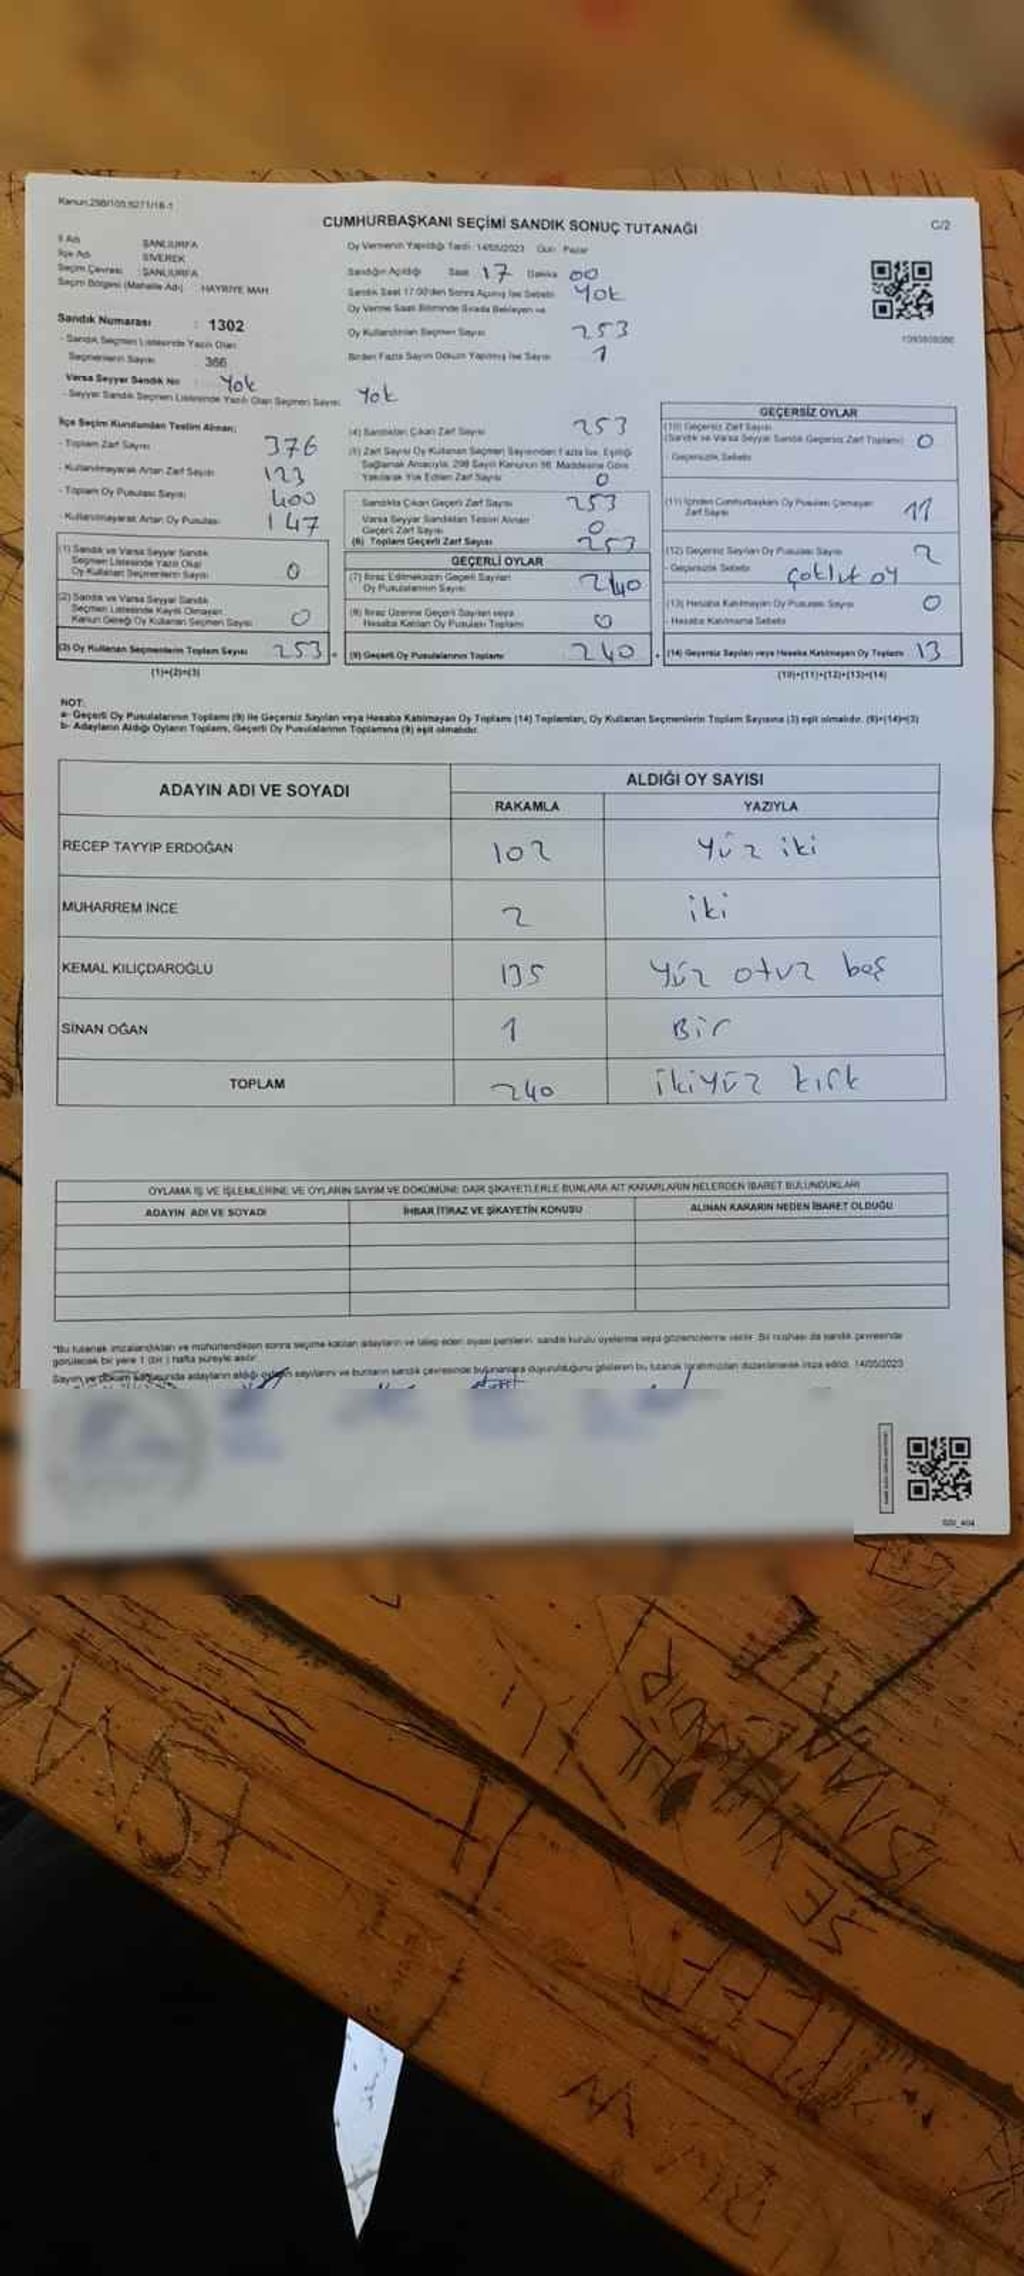 Kanun:298/105;6271/18-1
CUMHURBAŞKANI SEÇİMİ SANDIK SONUÇ TUTANAĞI
C/2
İl Adı : ŞANLIURFA
İlçe Adı : SİVEREK
Seçim Çevresi : ŞANLIURFA
Seçim Bölgesi (Mahalle Adı) : HAYRİYE MAH.
Sandık Numarası : 1302
- Sandık Seçmen Listesinde Yazılı Olan
Seçmenlerin Sayısı : 366
Varsa Seyyar Sandık No : Yok
- Seyyar Sandık Seçmen Listesinde Yazılı Olan Seçmen Sayısı: Yok
Oy Vermenin Yapıldığı Tarih : 14/05/2023 Gün : Pazar
Sandığın Açıldığı Saat 17 Dakika 00
Sandık Saat 17:00'den Sonra Açılmış İse Sebebi: Yok
Oy Verme Saati Bitiminde Sırada Bekleyen ve
Oy Kullandırılan Seçmen Sayısı 253
Birden Fazla Sayım Döküm Yapılmış İse Sayısı 1
İlçe Seçim Kurulundan Teslim Alınan;
- Toplam Zarf Sayısı 376
- Kullanılmayarak Artan Zarf Sayısı 123
- Toplam Oy Pusulası Sayısı 400
- Kullanılmayarak Artan Oy Pusulası 147
(1) Sandık ve Varsa Seyyar Sandık
Seçmen Listesinde Yazılı Olup
Oy Kullanan Seçmenlerin Sayısı 0
(2) Sandık ve Varsa Seyyar Sandık
Seçmen Listesinde Kayıtlı Olmayan
Kanun Gereği Oy Kullanan Seçmen Sayısı 0
(3) Oy Kullanan Seçmenlerin Toplam Sayısı 253 =
(1)+(2)=(3)
(4) Sandıktan Çıkan Zarf Sayısı 253
(5) Zarf Sayısı Oy Kullanan Seçmen Sayısından Fazla İse, Eşitliği
Sağlamak Amacıyla, 298 Sayılı Kanunun 98. Maddesine Göre
Yakılarak Yok Edilen Zarf Sayısı 0
Sandıkta Çıkan Geçerli Zarf Sayısı 253
Varsa Seyyar Sandıktan Teslim Alınan
Geçerli Zarf Sayısı 0
(6) Toplam Geçerli Zarf Sayısı 253
GEÇERLİ OYLAR
(7) İtiraz Edilmeksizin Geçerli Sayılan
Oy Pusulalarının Sayısı 240
(8) İtiraz Üzerine Geçerli Sayılan veya
Hesaba Katılan Oy Pusulası Toplamı 0
(9) Geçerli Oy Pusulalarının Toplamı 240 +
GEÇERSİZ OYLAR
(10) Geçersiz Zarf Sayısı
(Sandık ve Varsa Seyyar Sandık Geçersiz Zarf Toplamı) 0
- Geçersizlik Sebebi:
(11) İçinden Cumhurbaşkanı Oy Pusulası Çıkmayan
Zarf Sayısı 11
(12) Geçersiz Sayılan Oy Pusulası Sayısı 2
- Geçersizlik Sebebi: çokluk oy
(13) Hesaba Katılmayan Oy Pusulası Sayısı 0
- Hesaba Katılmama Sebebi:
(14) Geçersiz Sayılan veya Hesaba Katılmayan Oy Toplamı 13
(10)+(11)+(12)+(13)=(14)
NOT:
a- Geçerli Oy Pusulalarının Toplamı (9) ile Geçersiz Sayılan veya Hesaba Katılmayan Oy Toplamı (14) Toplamları, Oy Kullanan Seçmenlerin Toplam Sayısına (3) eşit olmalıdır. (9)+(14)=(3)
b- Adayların Aldığı Oyların Toplamı, Geçerli Oy Pusulalarının Toplamına (9) eşit olmalıdır.
ADAYIN ADI VE SOYADI
ALDIĞI OY SAYISI
RAKAMLA YAZIYLA
RECEP TAYYİP ERDOĞAN 102 Yüz iki
MUHARREM İNCE 2 iki
KEMAL KILIÇDAROĞLU 135 Yüz otuz beş
SİNAN OĞAN 1 Bir
TOPLAM 240 ikiyüz kırk
OYLAMA İŞ VE İŞLEMLERİNE VE OYLARIN SAYIM VE DÖKÜMÜNE DAİR ŞİKAYETLERLE BUNLARA AİT KARARLARIN NELERDEN İBARET BULUNDUKLARI
ADAYIN ADI VE SOYADI İHBAR İTİRAZ VE ŞİKAYETİN KONUSU ALINAN KARARIN NEDEN İBARET OLDUĞU
"Bu tutanak imzalandıktan ve mühürlendikten sonra seçime katılan adayların ve talep eden siyasi partilerin, sandık kurulu üyelerine veya gözlemcilerine verilir. Bir nüshası da sandık çevresinde
görülecek bir yere 1 (bir) hafta süreyle asılır.
Sayım ve döküm sonucunda adayların aldığı oyların sayılarını ve bunların sandık çevresinde bulunanlara duyurulduğunu gösteren bu tutanak tarafımızdan düzenlenerek imza edildi. 14/05/2023